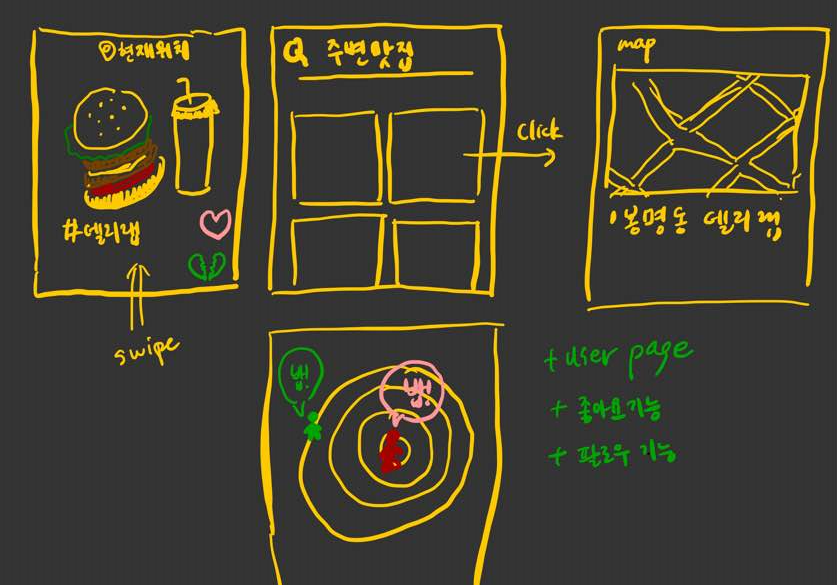 현재위치
#델리랩
swipe
Q 주변맛집
click
map
봉명동 델리랩
밥!
밥!
+ user page
+ 좋아요기능
+ 팔로우 기능